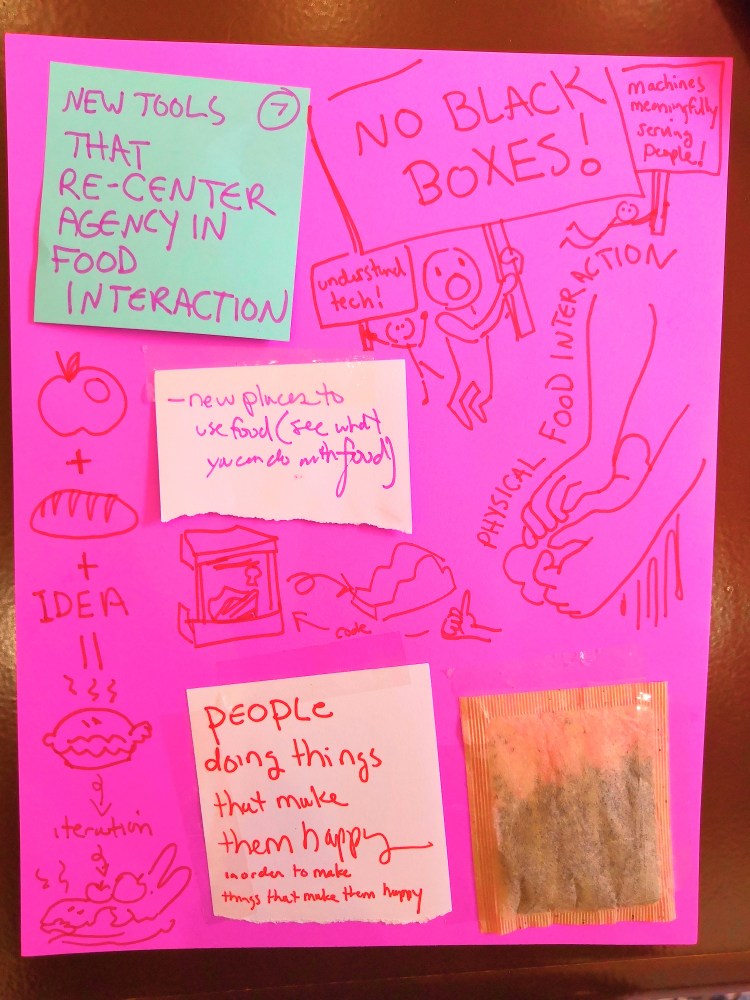 NEW TOOLS 7
THAT
RE-CENTER
AGENCY IN
FOOD
INTERACTION
NO BLACK
BOXES!
machines
meaningfully
serving
people!
understand
tech!
PHYSICAL FOOD INTERACTION
- new places to
use food (see what
you can do with food)
+
+
IDEA
=
iteration
code
PEOPLE
doing things
that make
them happy
in order to make
things that make them happy